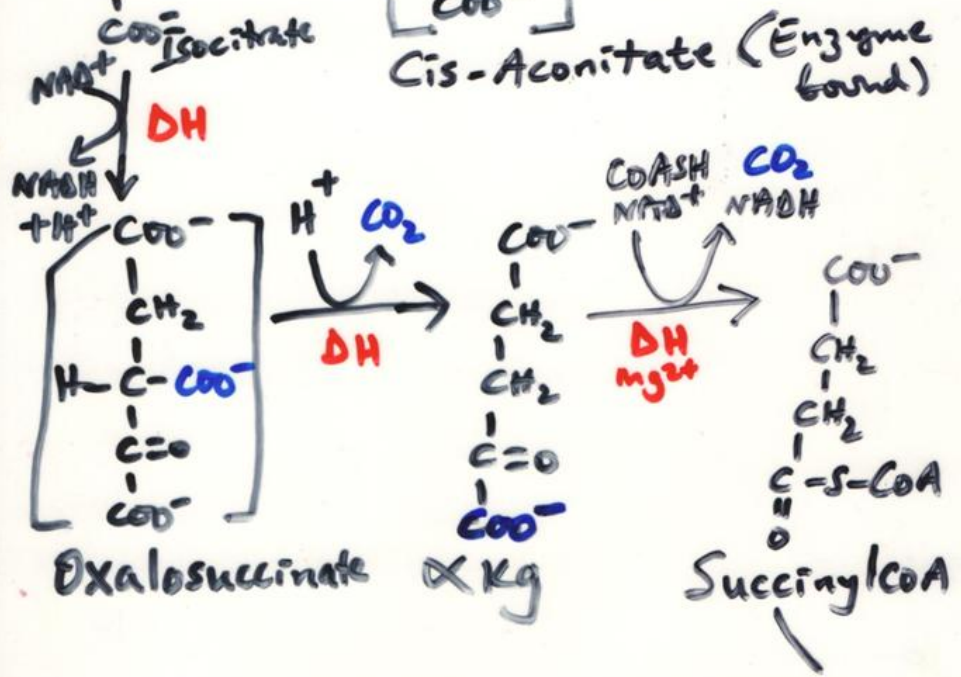 COO⁻ Isocitrate
COO⁻
Cis-Aconitate (Enzyme bound)
NAD⁺
DH
NADH
+H⁺
COO⁻
CH₂
H-C-COO⁻
C=O
COO⁻
Oxalosuccinate
H⁺
CO₂
DH
COO⁻
CH₂
CH₂
C=O
COO⁻
αKg
COASH
NAD⁺
CO₂
NADH
DH
Mg²⁺
COO⁻
CH₂
CH₂
C-S-COA
O
SuccinylCOA